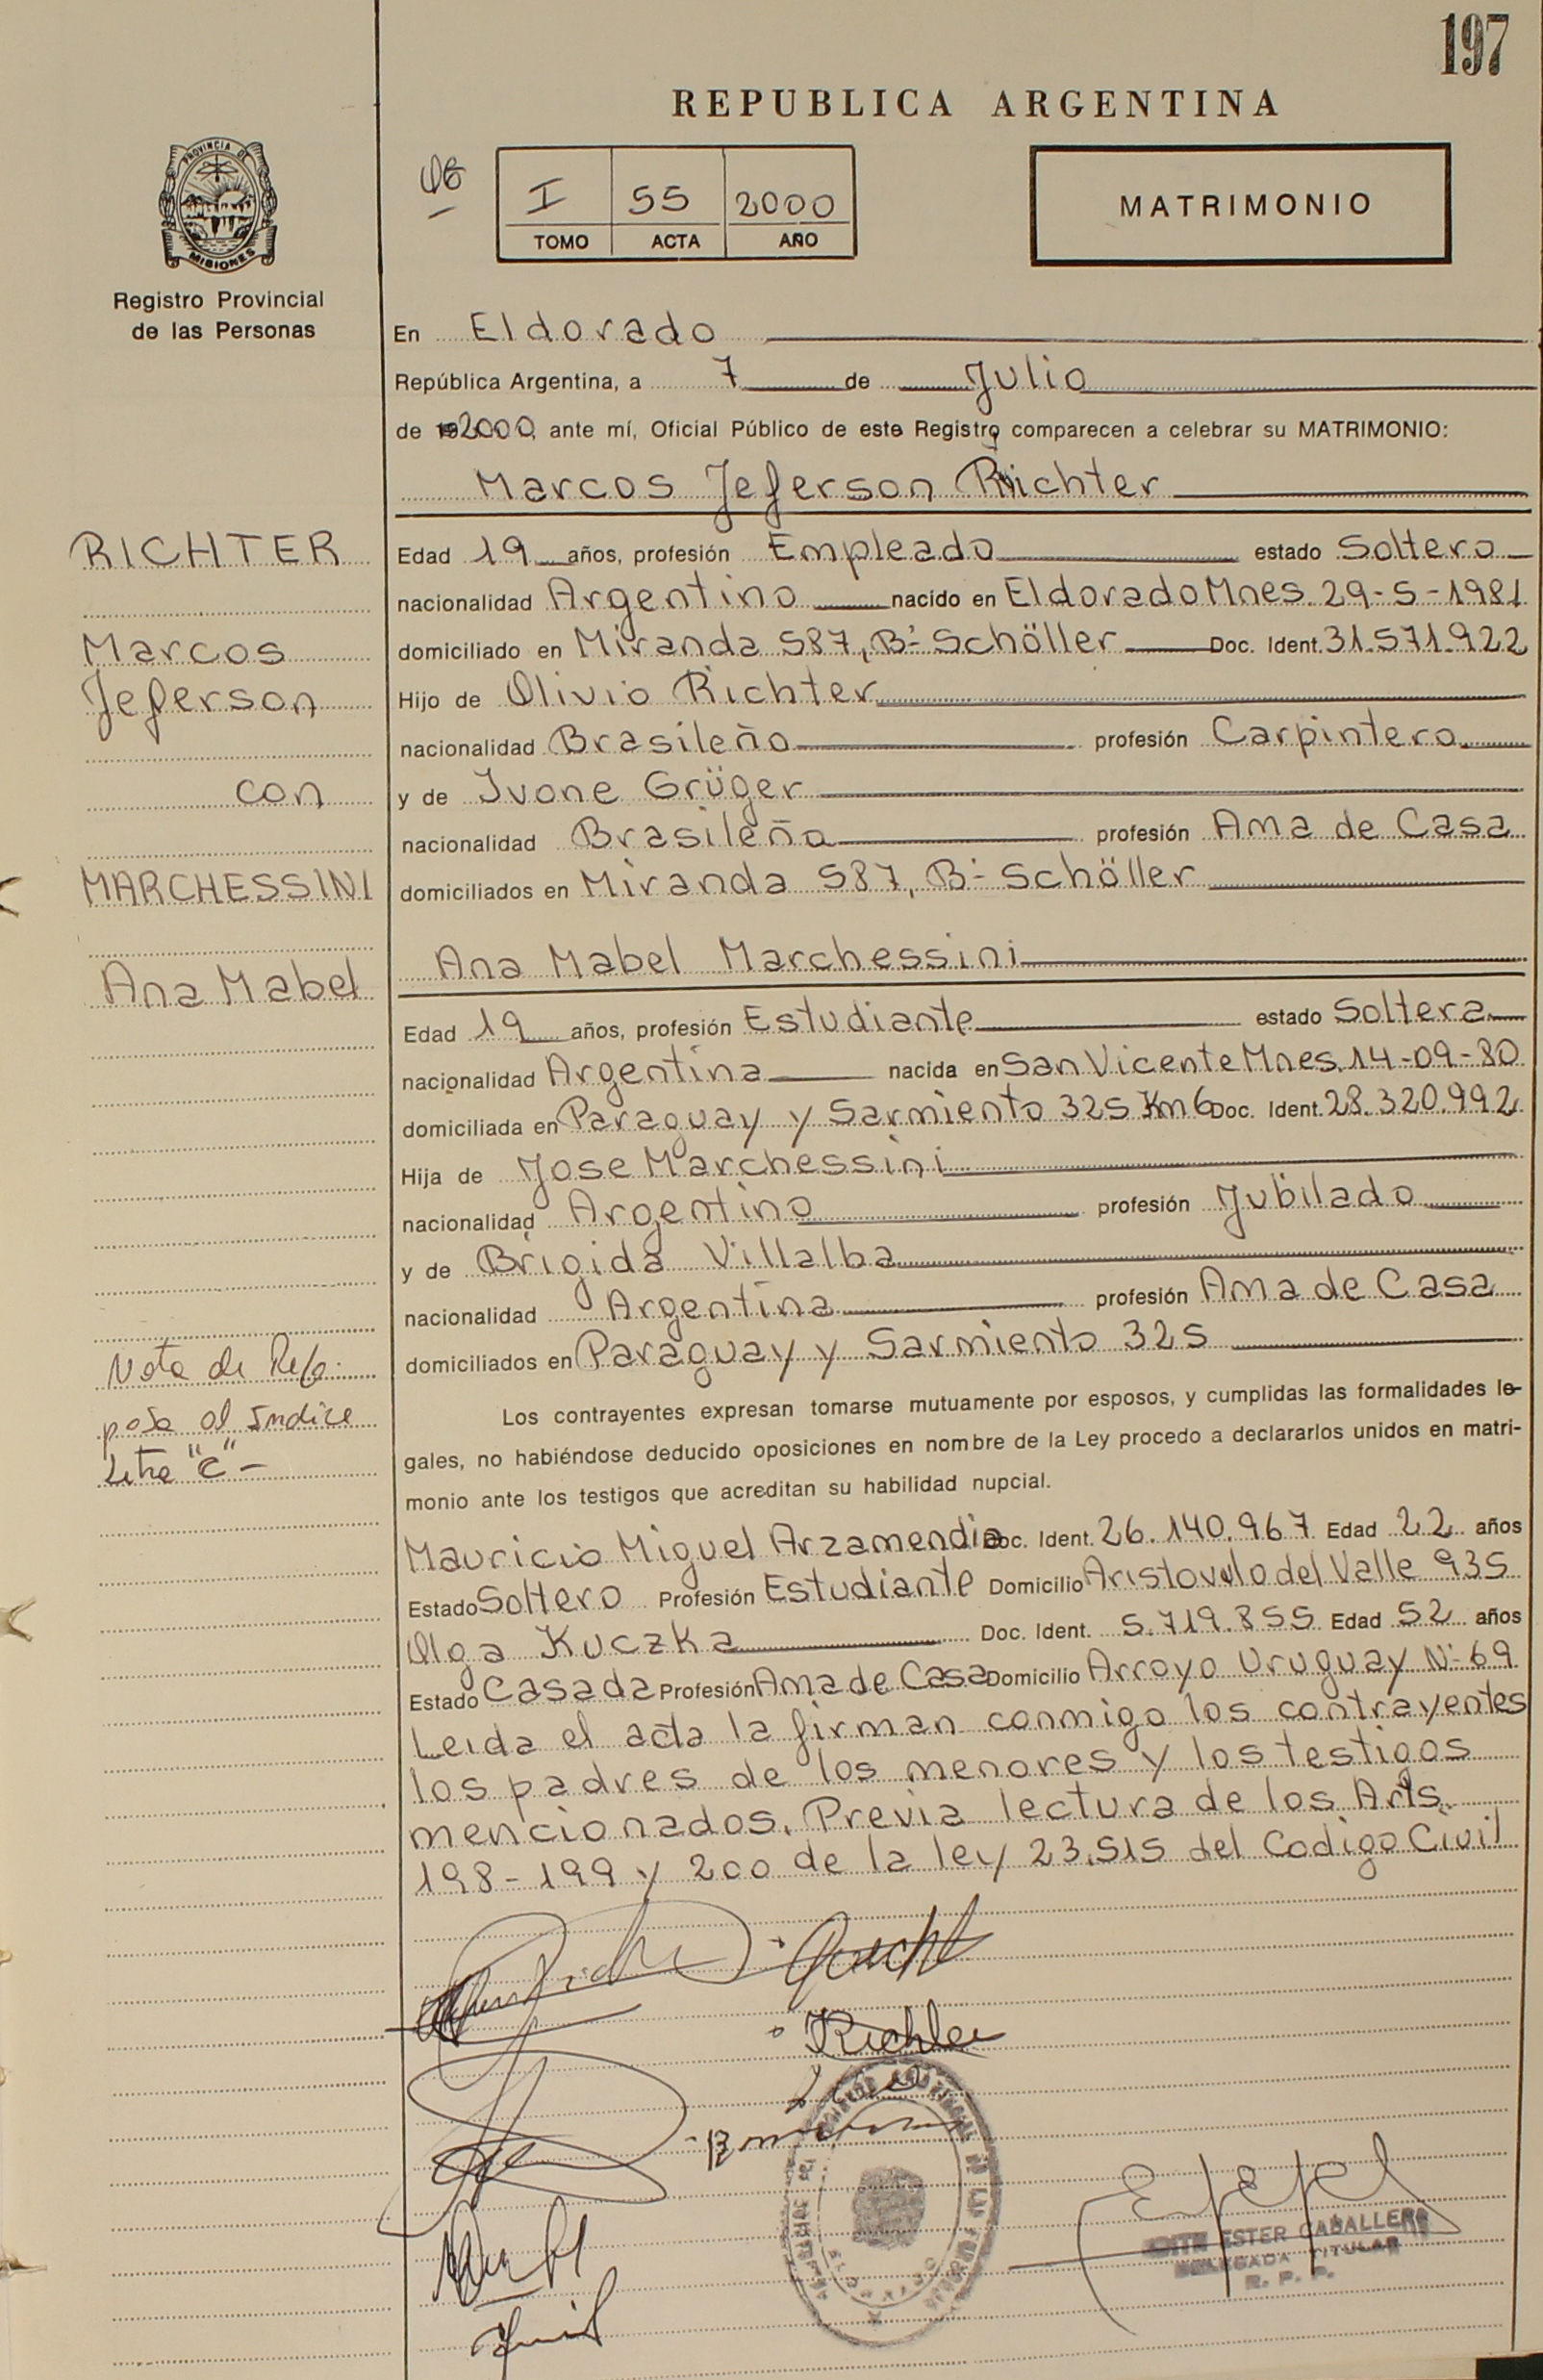 197
REPUBLICA ARGENTINA
I 55 2000
TOMO ACTA AÑO
MATRIMONIO
PROVINCIA DE
MISIONES
Registro Provincial
de las Personas
En Eldorado
República Argentina, a 7 de Julio
de 2000, ante mí, Oficial Público de este Registro comparecen a celebrar su MATRIMONIO:
Marcos Jeferson Richter
Edad 19 años, profesión Empleado estado Soltero
nacionalidad Argentino nacido en Eldorado Mnes. 29-5-1981
domiciliado en Miranda 587, Bº Schöller Doc. Ident. 31.571.922
Hijo de Olivio Richter
nacionalidad Brasileño profesión Carpintero
y de Ivone Grüger
nacionalidad Brasileña profesión Ama de Casa
domiciliados en Miranda 587, Bº Schöller
Ana Mabel Marchessini
Edad 19 años, profesión Estudiante estado Soltera
nacionalidad Argentina nacida en San Vicente Mnes. 14-09-80
domiciliada en Paraguay y Sarmiento 325 Km 6 Doc. Ident. 28.320.992
Hija de Jose Marchessini
nacionalidad Argentino profesión Jubilado
y de Brigida Villalba
nacionalidad Argentina profesión Ama de Casa
domiciliados en Paraguay y Sarmiento 325
Los contrayentes expresan tomarse mutuamente por esposos, y cumplidas las formalidades le-
gales, no habiéndose deducido oposiciones en nombre de la Ley procedo a declararlos unidos en matri-
monio ante los testigos que acreditan su habilidad nupcial.
Mauricio Miguel Arzamendia Doc. Ident. 26.140.967 Edad 22 años
Estado Soltero Profesión Estudiante Domicilio Aristovulo del Valle 935
Olga Kuczka Doc. Ident. 5.719.855 Edad 52 años
Estado Casada Profesión Ama de Casa Domicilio Arroyo Uruguay Nº 69
Leida el acta la firman conmigo los contrayentes
los padres de los menores y los testigos
mencionados. Previa lectura de los Arts.
198-199 y 200 de la ley 23.515 del Codigo Civil
RICHTER
Marcos
Jeferson
con
MARCHESSINI
Ana Mabel
Nota de Refa.
pasa al Indice
Letra "C" -
Richter
ESTER CABALLERO
DELEGADA TITULAR
R. P. P.